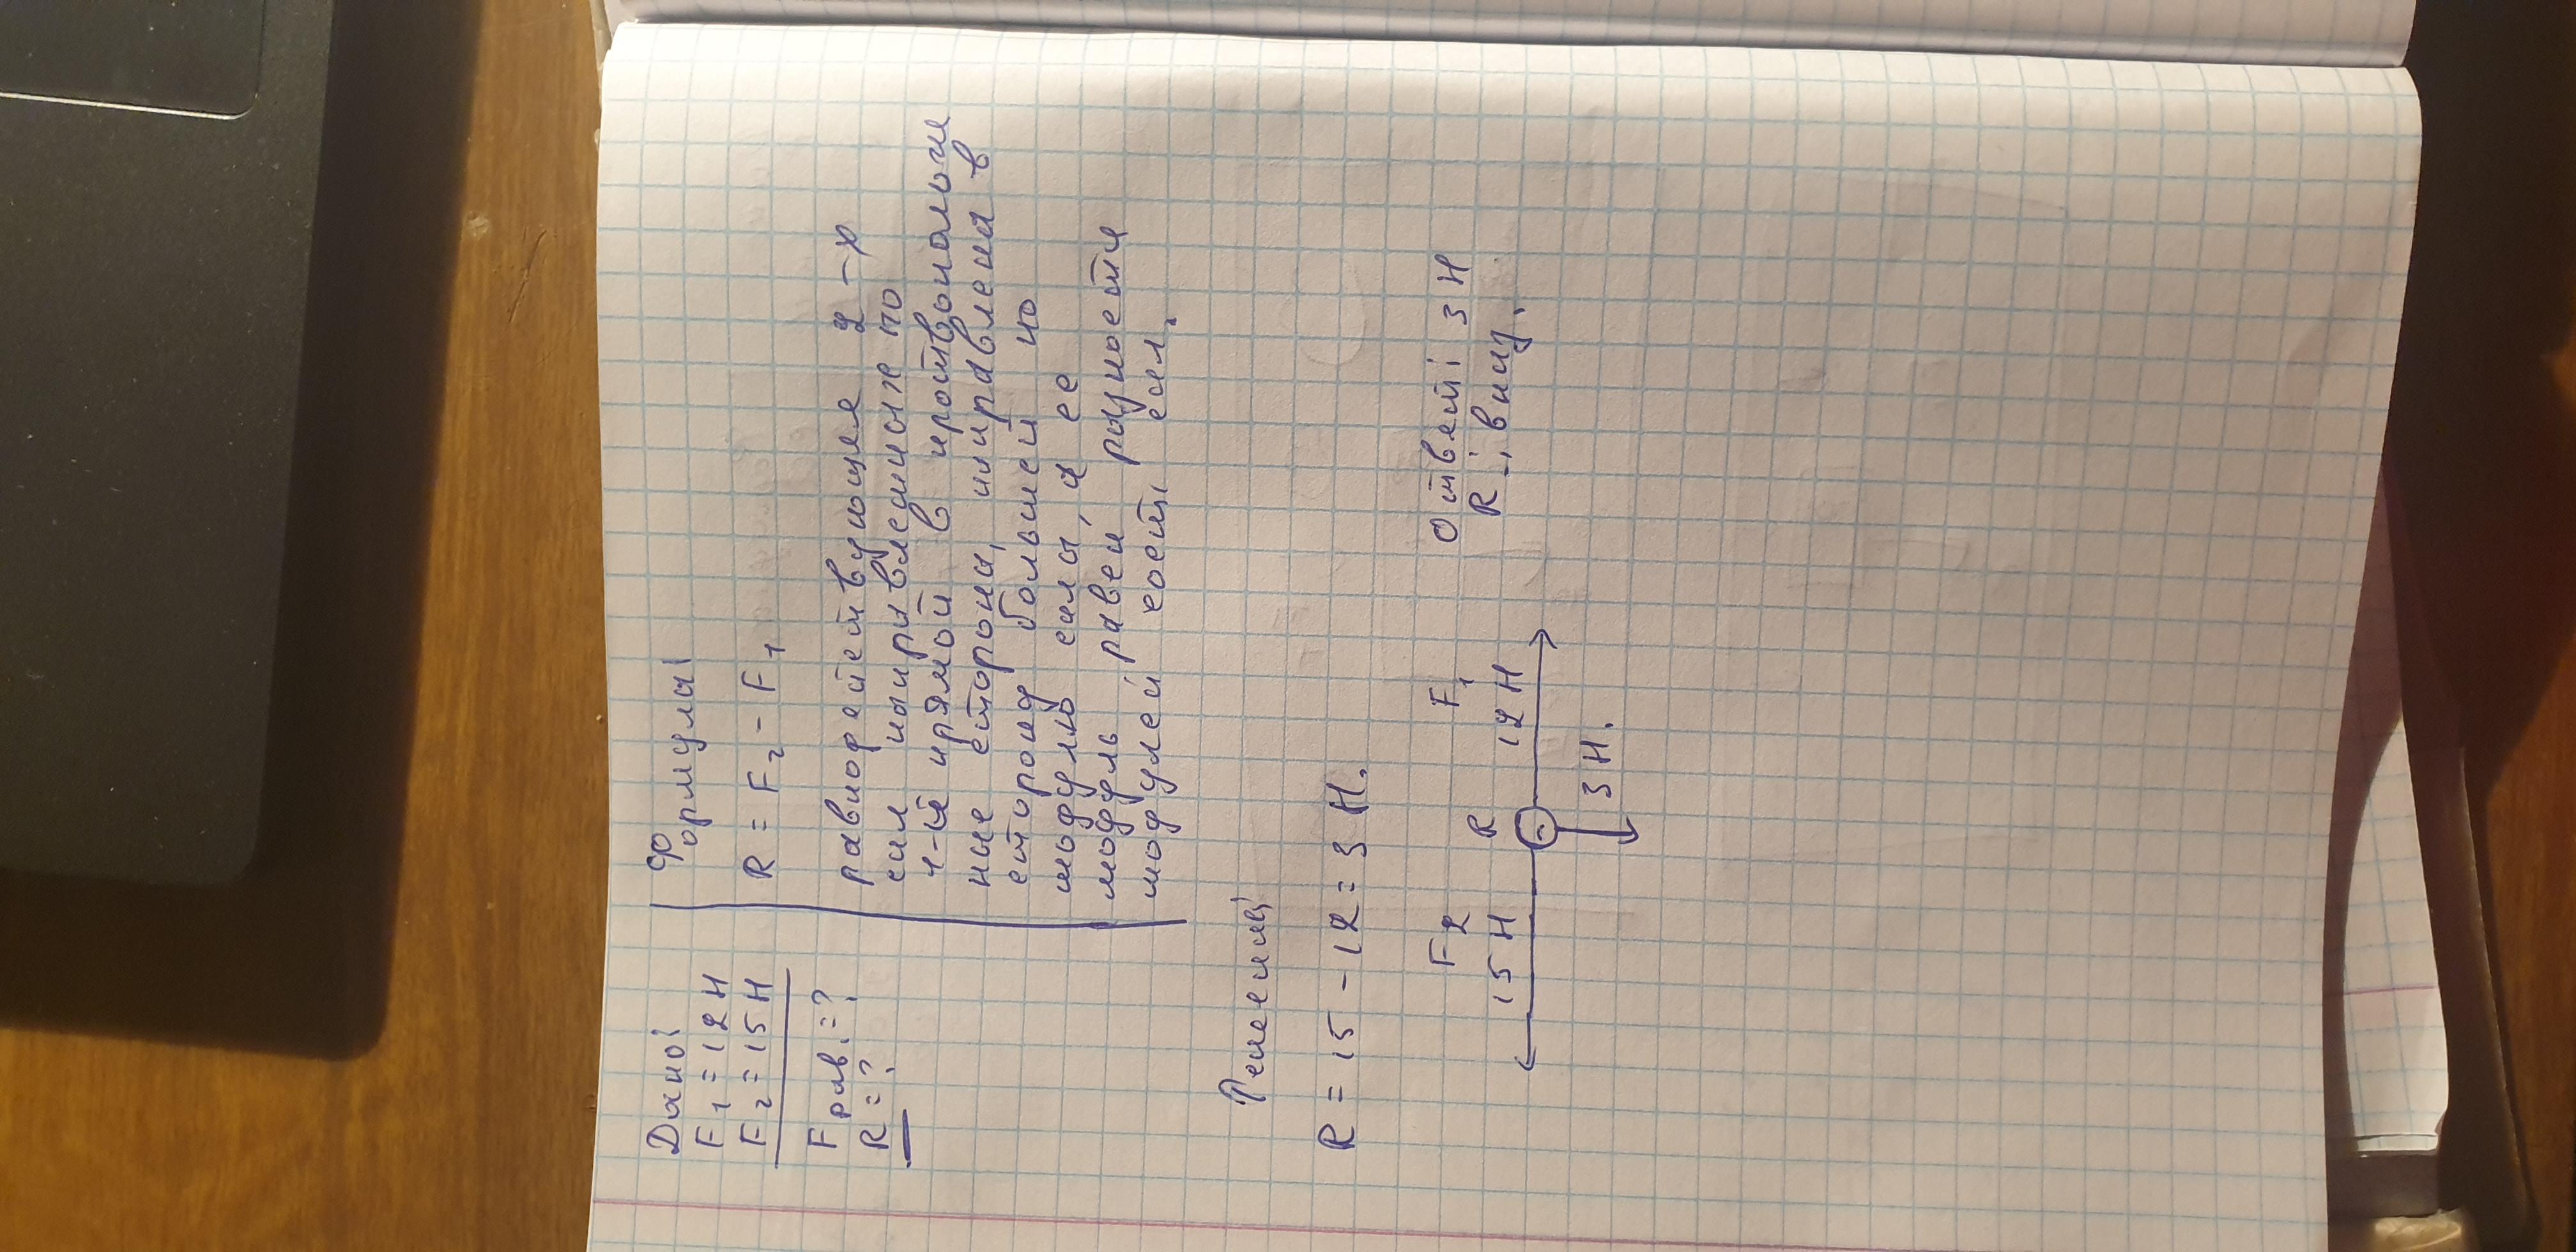 Дано:
F1 = 12 Н
F2 = 15 Н
Fрав. = ?
R = ?
Формулы
R = F2 - F1
равнодействующая 2-х
сил направленных по
1-й прямой в противополож
ные стороны, направлена в
сторону большей по
модулю силы, а ее
модуль равен разности
модулей сост. сил.
Решение:
R = 15 - 12 = 3 Н.
F2 R F1
15 Н 12 Н
3 Н.
Ответ: 3 Н
R -